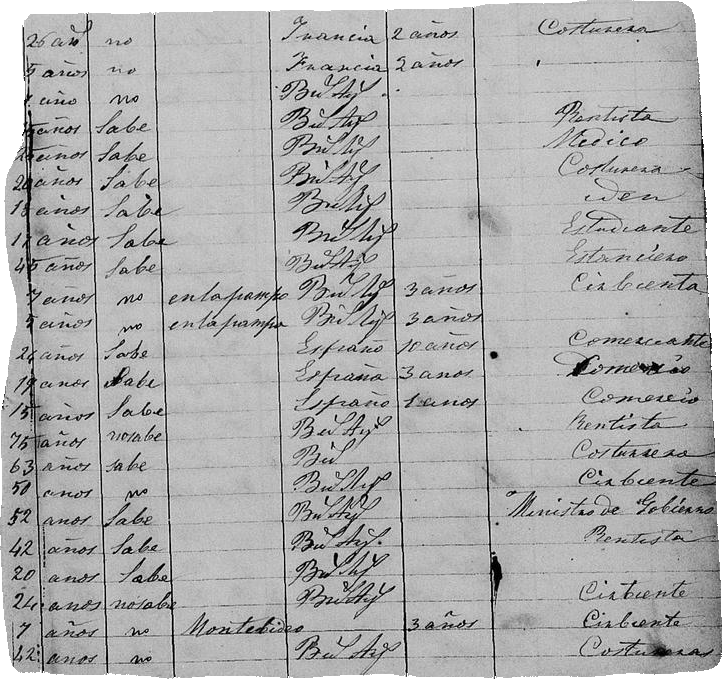 26 añ no Francia 2 años Costurera
5 años no Francia 2 años
año no Bus Ays
años Sabe Bus Ays Rentista
años Sabe Bus Ays Medico
20 años Sabe Bus Ays Costurera
18 años Sabe Bus Ays iden
17 años Sabe Bus Ays Estudiante
45 años Sabe Bus Ays Estanciero
7 años no en la pampa Bus Ays 3 años Cirbienta
5 años no en la pampa Bus Ays 3 años
24 años Sabe España 10 años Comerciante
19 anos Sabe España 3 anos Comercio
15 años Sabe España 1 anos Comercio
75 años no sabe Bus Ays Rentista
63 años sabe Bus Costurera
50 anos no Bus Ays Cirbiente
52 anos Sabe Bus Ays Ministro de Gobierno
42 años Sabe Bus Ays. Rentista
20 anos Sabe Bus Ays
24 anos no sabe Bus Ays Cirbiente
7 años no Montebideo 3 años Cirbiente
42 anos no Bus Ays Costureras